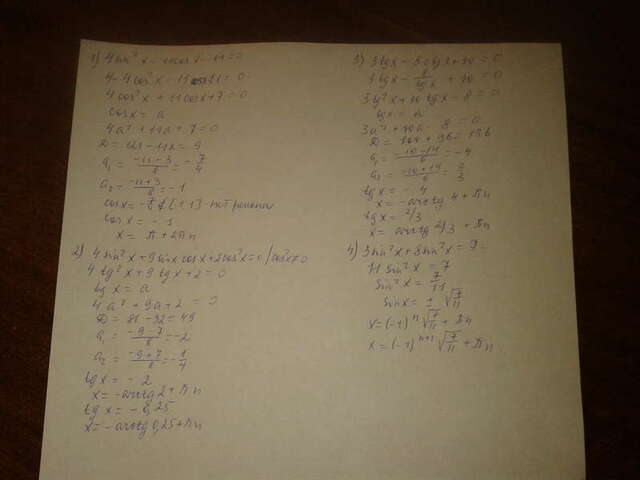 1) 4 sin² x - 11 cos x - 11 = 0
4 - 4 cos² x - 11 cos x - 11 = 0
4 cos² x + 11 cos x + 7 = 0
cos x = a
4a² + 11a + 7 = 0
D = 121 - 112 = 9
a₁ = (-11 - 3)/8 = -7/4
a₂ = (-11 + 3)/8 = -1
нет решения
cos x = -1
x = π + 2πn
2) 4 sin² x + 9 sin x cos x + 2 cos² x = 0 / cos² x ≠ 0
4 tg² x + 9 tg x + 2 = 0
tg x = a
4a² + 9a + 2 = 0
D = 81 - 32 = 49
a₁ = (-9 - 7)/8 = -2
a₂ = (-9 + 7)/8 = -1/4
tg x = -2
x = -arctg 2 + πn
tg x = -0,25
x = -arctg 0,25 + πn
3) 3 tg x - 8 ctg x + 10 = 0
3 tg x - 8/tg x + 10 = 0
3 tg² x + 10 tg x - 8 = 0
tg x = a
3a² + 10a - 8 = 0
D = 100 + 96 = 196
a₁ = (-10 - 14)/6 = -4
a₂ = (-10 + 14)/6 = 2/3
tg x = -4
x = -arctg 4 + πn
tg x = 2/3
x = arctg 2/3 + πn
4) 3 sin² x + 8 sin² x =
11 sin² x = 7
sin² x = 7/11
sin x = ± √(7/11)
x = (-1)ⁿ √(7/11) + πn
x = (-1)ⁿ⁺¹ √(7/11) + πn